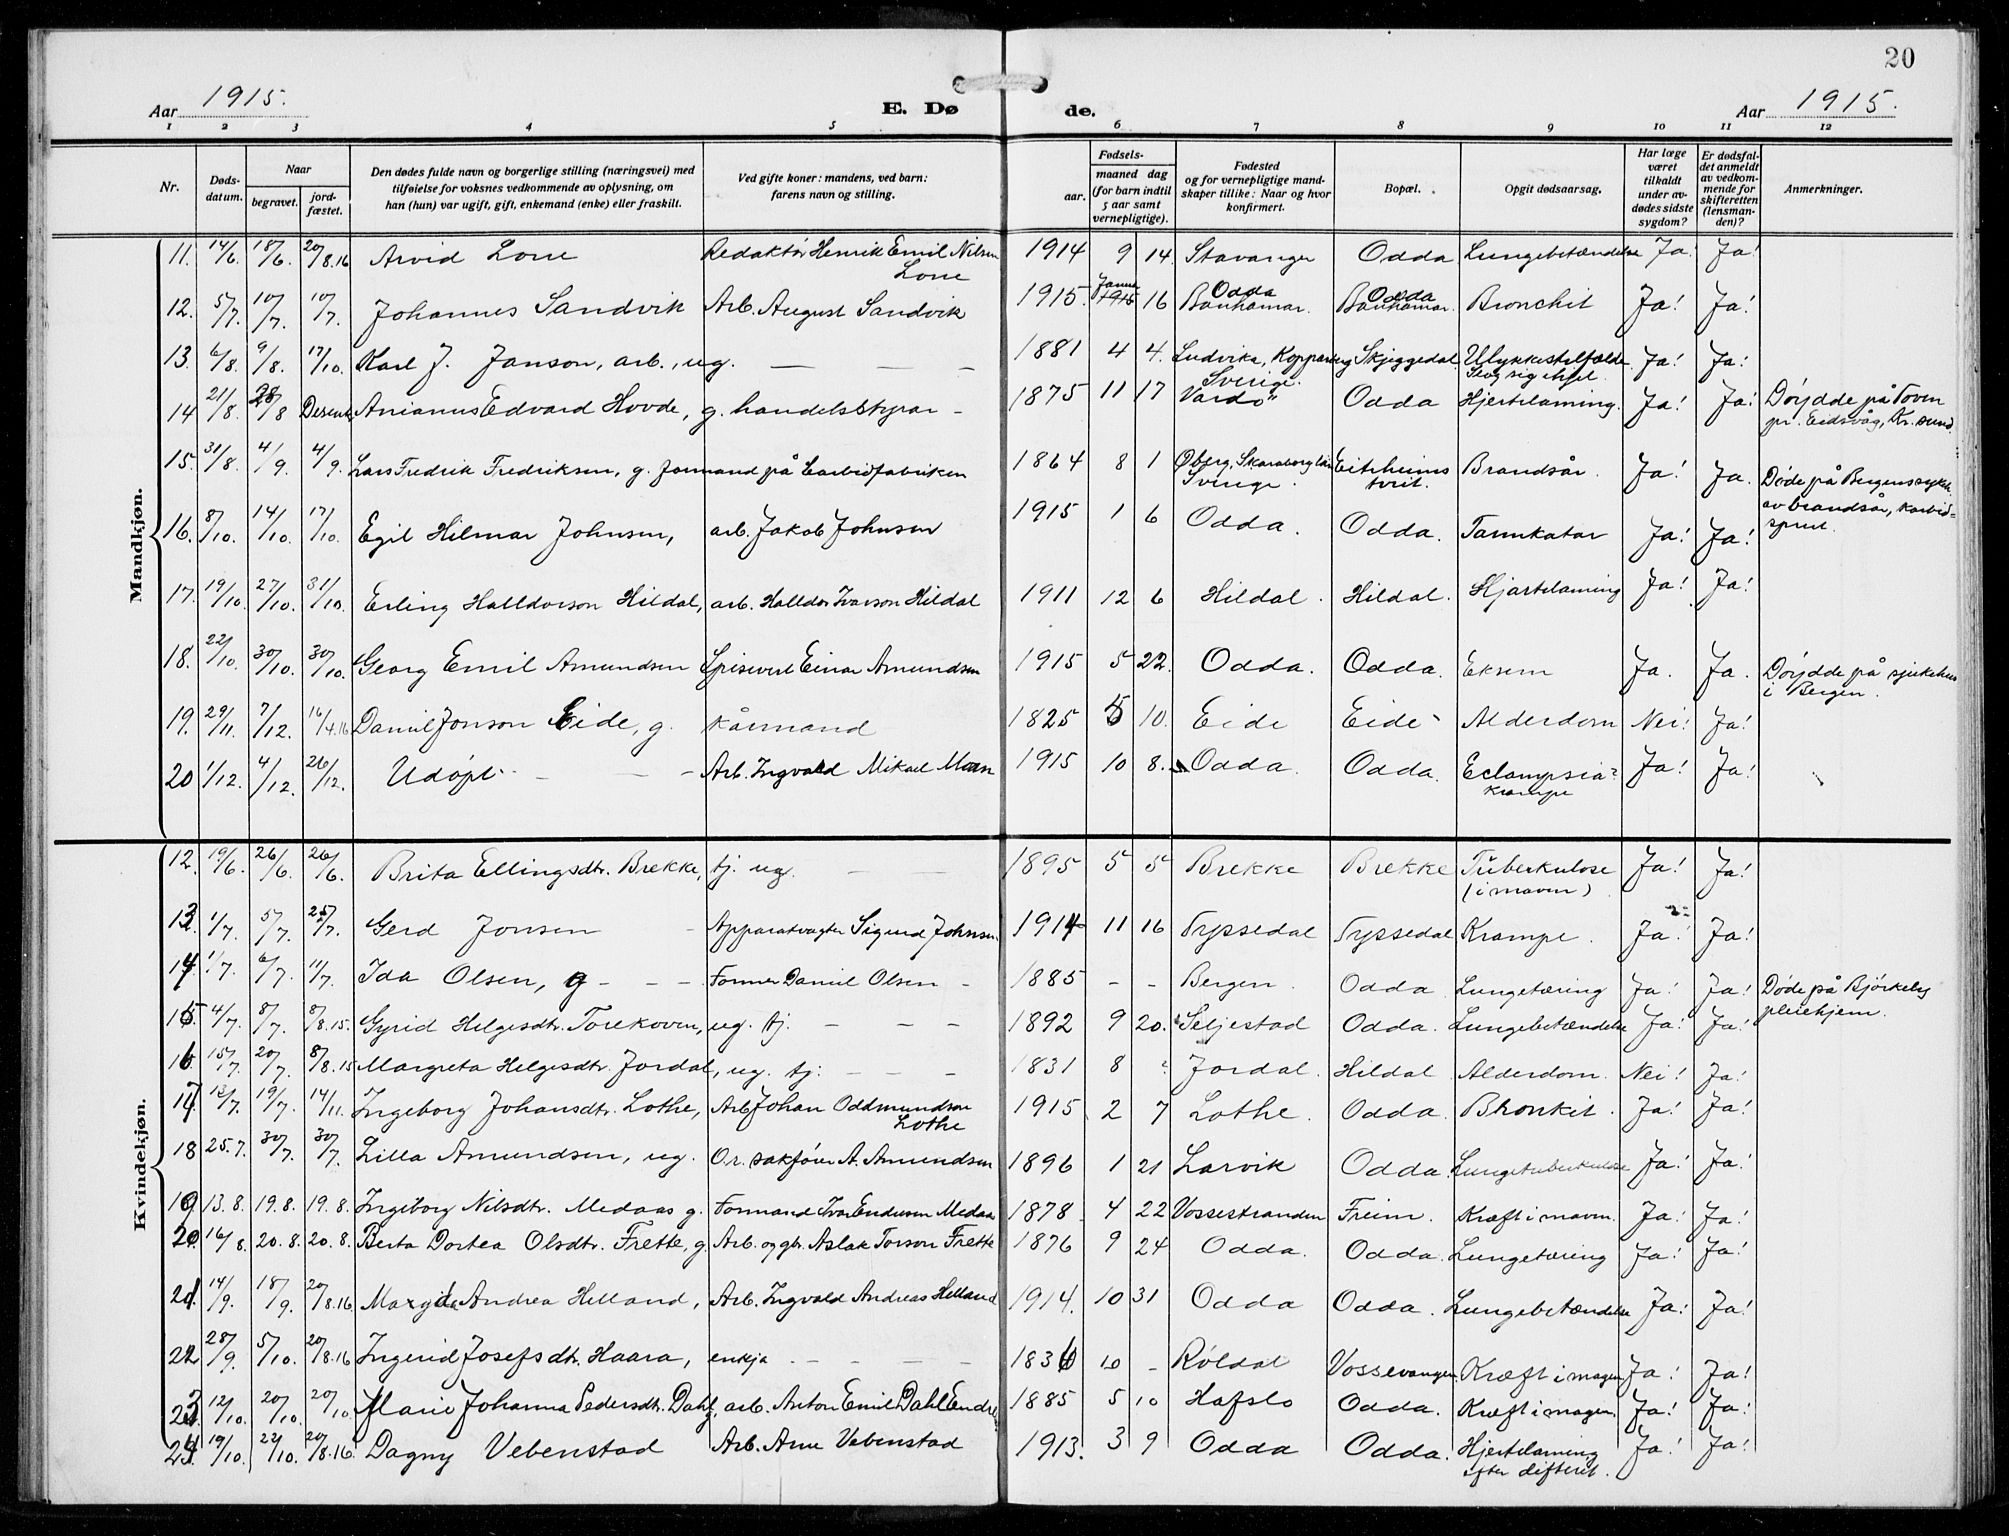 20
Aar 1915.
E. Døde.
Aar 1915.
1 2 3 4 5 6 7 8 9 10 11 12
Nr.
Døds-datum.
Naar
begravet.
jord-fæstet.
Den dødes fulde navn og borgerlige stilling (næringsvei) med
tilføielse for voksnes vedkommende av oplysning, om
han (hun) var ugift, gift, enkemand (enke) eller fraskilt.
Ved gifte koner: mandens, ved barn:
farens navn og stilling.
Fødsels-
aar.
maaned dag
(for barn indtil
5 aar samt
vernepligtige).
Fødested
og for vernepligtige mand-
skaper tillike: Naar og hvor
konfirmert.
Bopæl.
Opgit dødsaarsag.
Har læge
været
tilkaldt
under av-
dødes sidste
sygdom?
Er dødsfal-
det anmeldt
av vedkom-
mende for
skifteretten
(lensman-
den)?
Anmerkninger.
Mandkjøn.
11. 14/6. 18/6. 20/8.16 Arvid Lone Redaktør Henrik Emil Nilsen Lone 1914 9 14. Stavanger Odda Lungebetændelse Ja! Ja!
12. 5/7. 10/7. 10/7. Johannes Sandvik Arb. August Sandvik 1915. 16 Odda Odda Bronchit Ja! Ja!
13. 6/8. 9/8. 17/10. Karl J. Janson, arb., ug. — — — 1881 4 4. Ludvika, Kopparberg Sverige. Skjeggedal Ulykkestilfælde. Slog sig ihjel. Ja! Ja!
14 21/8. 28/8 Arianus Edvard Hovde, g. handelsstyrar - 1875 11 17 Vardö Odda Hjertelaming. Ja! Ja! Döydde på Toven pr. Eidsvåg, Kr.sund.
15. 31/8. 4/9. 4/9. Lars Fredrik Fredriksen, g. formand på Carbidfabriken 1864 8 1 Sverige. Eitrheims tveit. Brandsår. Ja! Ja. Döde på Bergens sykeh. av brandsår, karbid-sprut.
16. 8/10. 14/10. 17/10. Egil Hilmar Johnsen, arb. Jakob Johnsen 1915 1 6 Odda. Odda. Tarmkatar Ja! Ja!
17. 19/10. 27/10. 31/10. Erling Halldorson Hildal, arb. Halldor Ivarson Hildal 1911 12 6 Hildal. Hildal. Hjartelaming Ja! Ja!
18. 22/10. 30/10. 30/10. Georg Emil Amundsen Spisevert Einar Amundsen 1915 5 22. Odda. Odda. Eksem Ja. Ja. Döydde på sjukehus i Bergen.
19. 29/11. 7/12. 16/4.16 Daniel Jonson Eide, g. kårmand 1825 5 10. Eide Eide - Alderdom Nei! Ja!
20 1/12. 4/12. 26/12. Udöpt - — — Arb. Ingvald Mikael Moen 1915 10 8. Odda. Odda. Eclampsia? krampe Ja! Ja!
Kvindekjøn.
12. 19/6. 26/6. 26/6. Brita Ellingsdtr. Brekke, tj. ug. — — 1895 5 5 Brekke Brekke Tuberkulose (i maven) Ja! Ja!
13. 1/7. 5/7. 25/7. Gerd Jonsen - Apparatvagter Sigurd Johnsen. 1914 11 16 Tyssedal Tyssedal Krampe. Ja! Ja!
14. 1/7. 6/7. 11/7. Ida Olsen, g - - - Former Daniel Olsen - 1885 - - Bergen. Odda. Lungetæring Ja! Ja! Döde på Bjørkely pleiehjem.
15. 4/7. 8/7. 8/8.15. Gyrid Helgesdtr. Torekoven, ug. tj. — — — 1892 9 20. Seljestad Odda. Lungebetændelse Ja! Ja!
16 15/7. 20/7. 8/8.15 Margreta Helgesdtr. Jordal, ug. tj: — — — 1831 8 ? Jordal. Hildal Alderdom. Nei! Ja!
17 12/7. 19/7. 14/11. Ingeborg Johansdtr. Lothe, Arb. Johan Oddmundson Lothe 1915 2 7 Lothe. Odda. Bronkit. Ja! Ja!
18 25.7. 30/7. 30/7. Lilla Amundsen, ug. O.r. sakförer A. Amundsen 1896 1 21 Larvik Odda Lungetuberkulose Ja! Ja!
19 13.8. 19.8. 19.8. Ingeborg Nilsdtr. Medaas g. Formand Ivar Endresen Medaas 1878 4 22 Vossestranden Freim. Kræft i maven. Ja! Ja!
20. 16/8. 20.8. 20.8. Berta Dortea Olsdtr. Frette, g. Arb. og gbr. Aslak Torson Frette 1876 9 24 Odda. Odda. Lungetæring Ja! Ja!
21. 14/9. 18/9. 20/8.16 Andrea Helland, Arb. Ingvald Andreas Helland 1914. 10 31 Odda Odda. Lungebetændelse Ja! Ja!
22 28/9. 5/10. 20/8.16 Ingerid Josefsdtr. Haara, enkja. — — — — 1836 10 - Röldal Vossevangen. Kræft i magen Ja! Ja!
23. 12/10. 20/10. 20/10. Marie Johanna Pedersdt. Dahl, arb. Anton Emil Dahl 1885 5 10 Hafslo Odda. Kræft i magen. Ja! Ja!
24. 19/10. 22/10. 20/8.16. Dagny Vebenstad Arb. Arne Vebenstad 1913. 3 9 Odda Odda. Hjertelaming efter difterit. Ja! Ja!